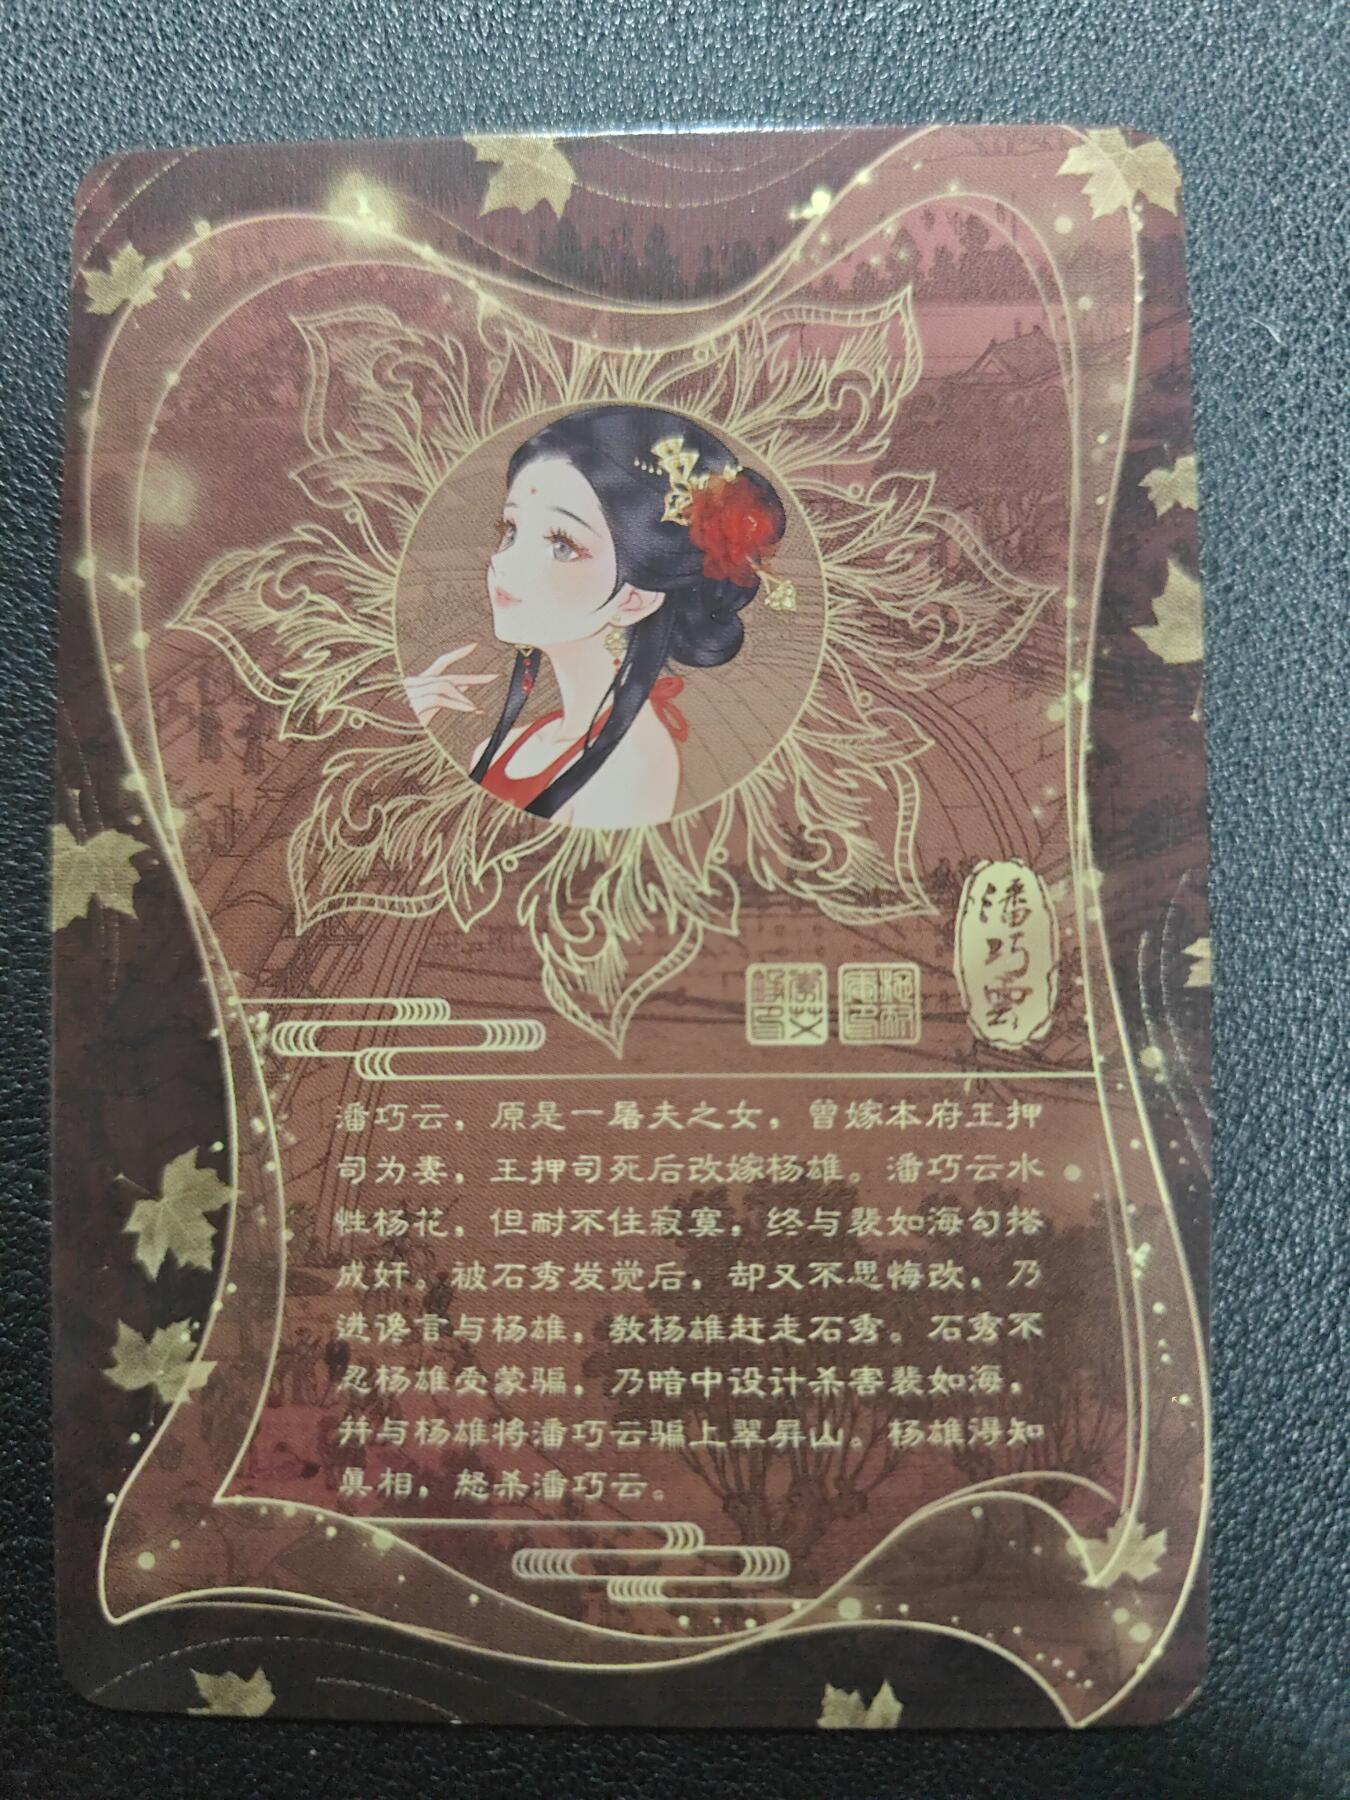 潘巧雲
潘巧云，原是一屠夫之女，曾嫁本府王押
司为妻，王押司死后改嫁杨雄。潘巧云水
性杨花，但耐不住寂寞，终与裴如海勾搭
成奸。被石秀发觉后，却又不思悔改，乃
进谗言与杨雄，教杨雄赶走石秀。石秀不
忍杨雄受蒙骗，乃暗中设计杀害裴如海，
并与杨雄将潘巧云骗上翠屏山。杨雄得知
真相，怒杀潘巧云。